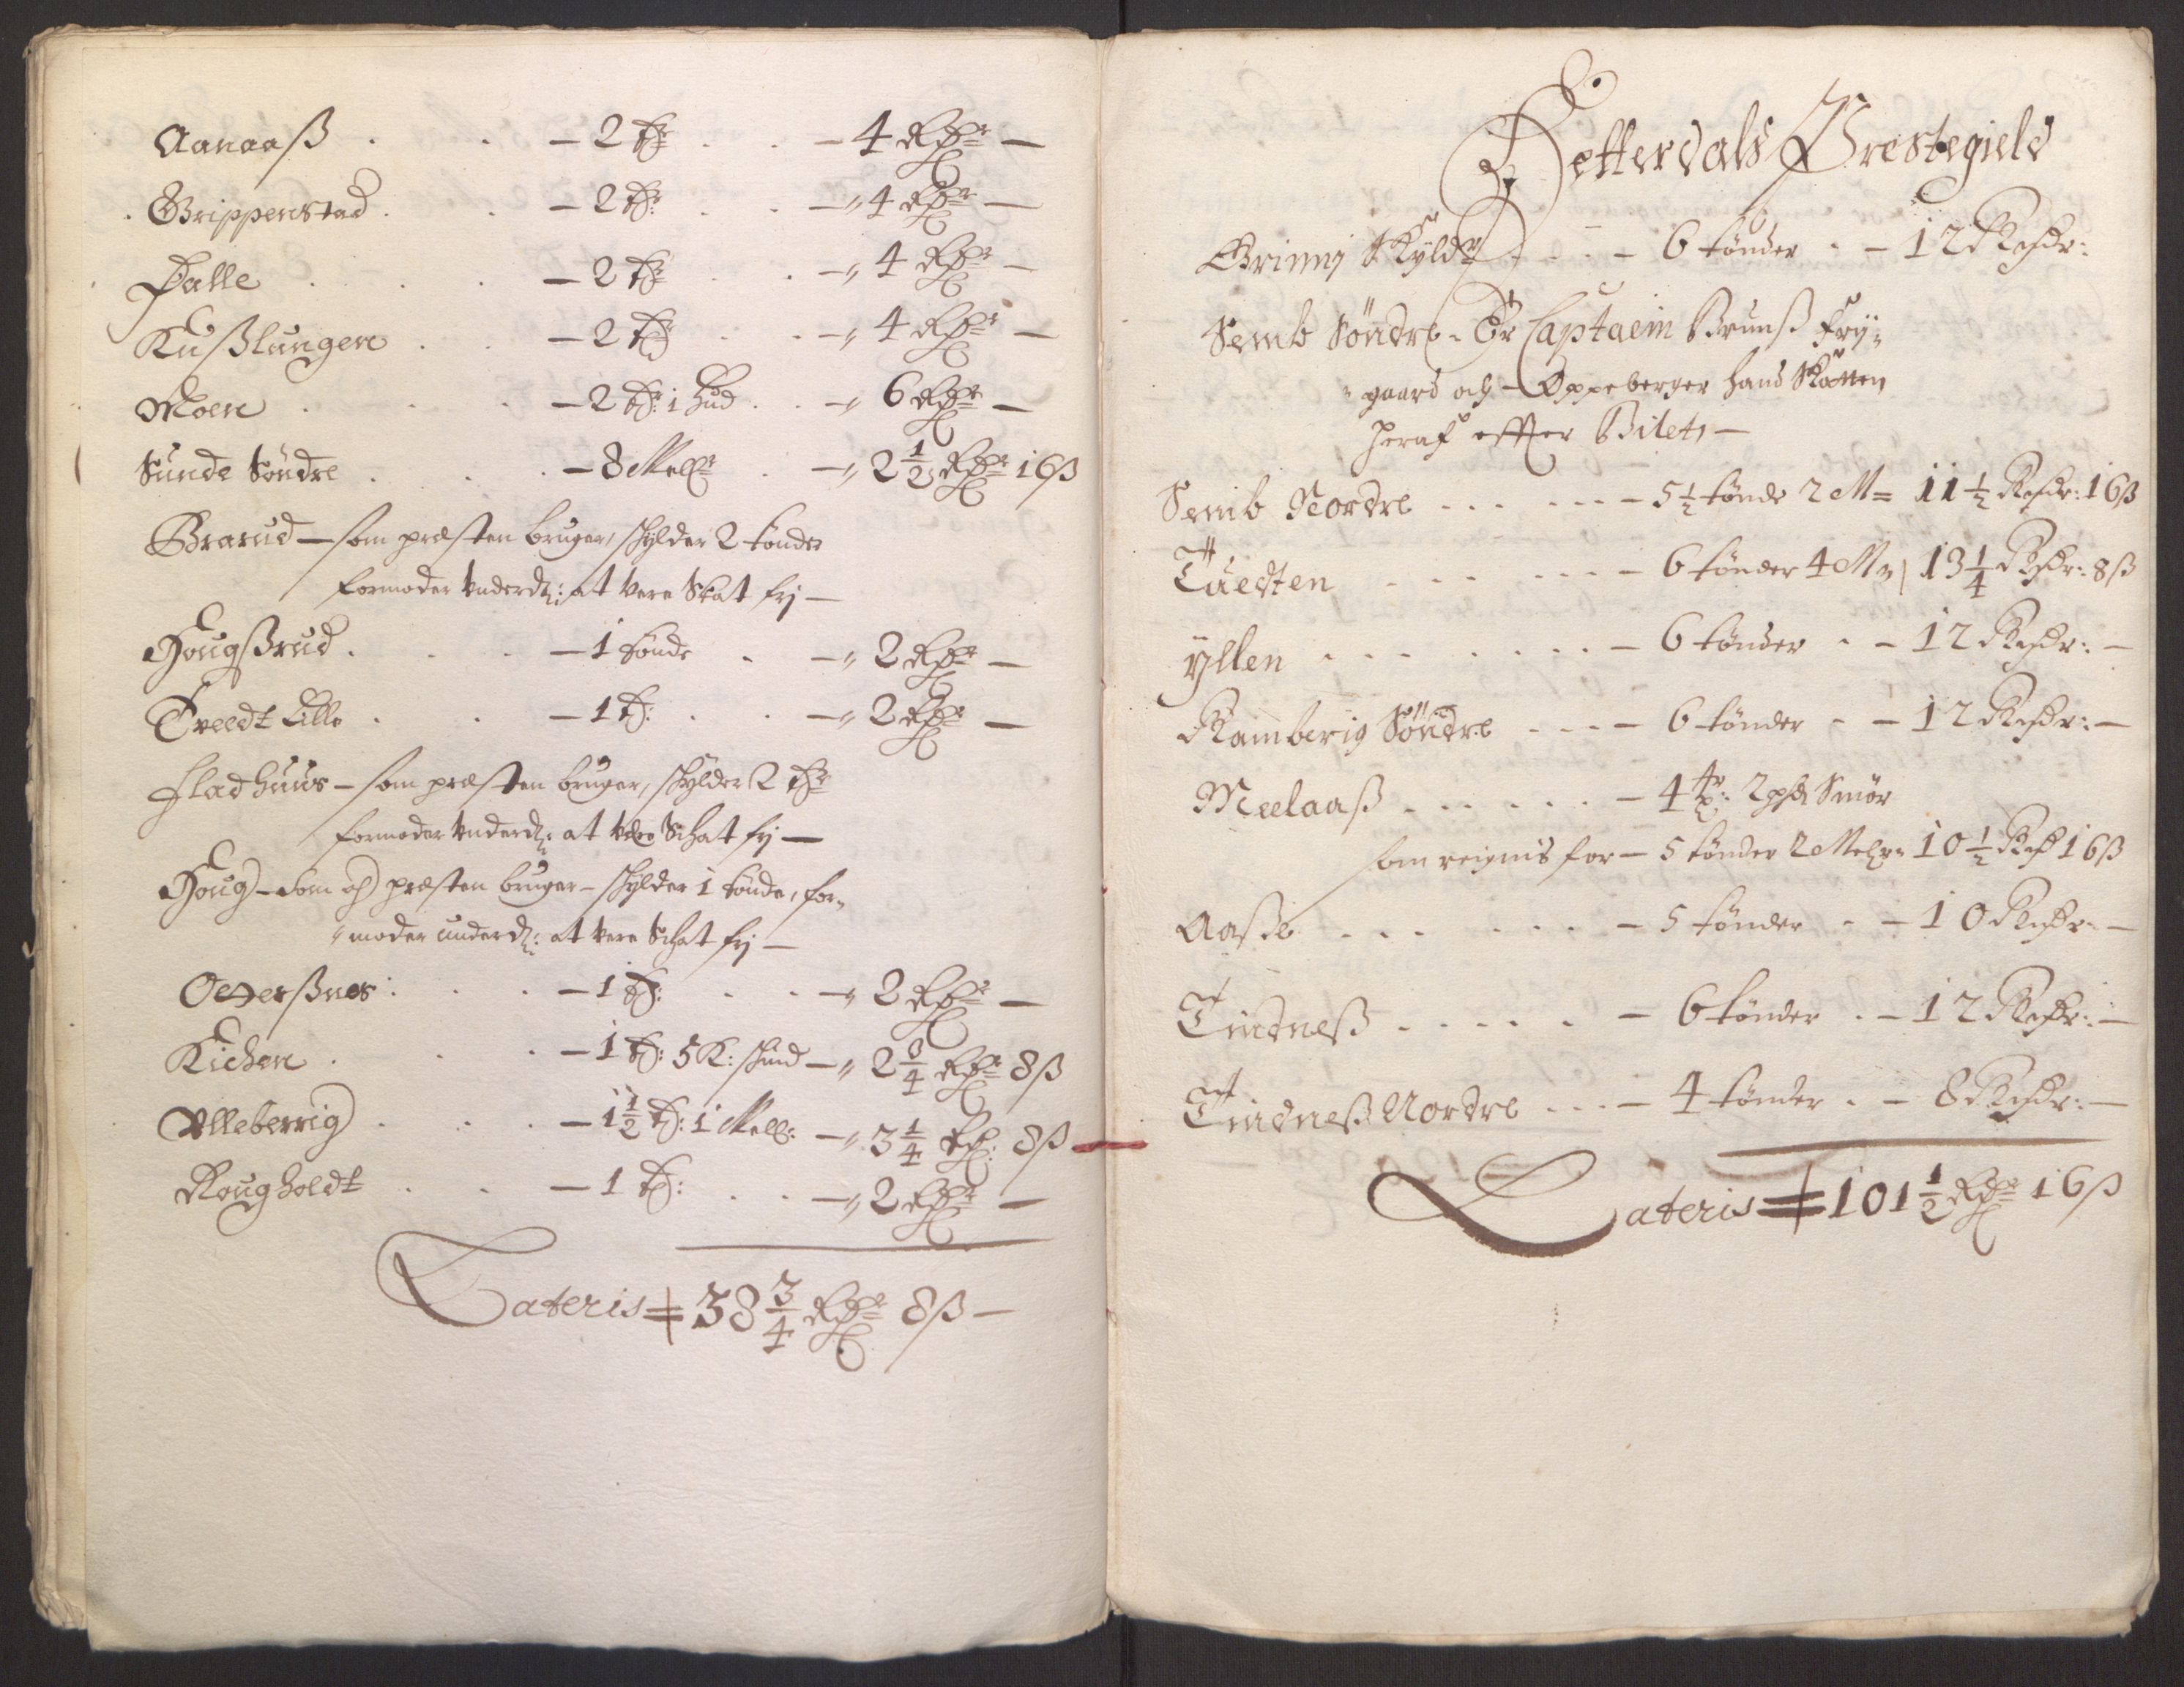 Aanaaß . . — 2 tr — 4 Rdr —
Grippenstad . . — 2 tr: — 4 Rdr —
Palle . . . — 2 tr — 4 Rdr —
Kußlungen . . — 2 tr — 4 Rdr —
Moen . . . — 2 tr: 1 hud . — 6 Rdr —
Sunde Søndre . . . — 8 Mellr — 2 1/2 Rdr 16 ß
Brarud — som præsten bruger, schylder 2 tønder
formoder underd: at vere Skat frj —
Hougßrud . . . — 1 tønde . — 2 Rdr —
Tveedt Lille . . — 1 t: . . — 2 Rdr —
Fladhuus — som præsten bruger, schylder 2 tr
formoder underd: at vere Schat frj —
Houg — som og præsten bruger — schylder 1 tønde, for-
moder underd: at vere Schat frj —
Oeterßnes: . . — 1 t: . . — 2 Rdr —
Kichen . . . — 1 t: 5 K: skind — 2 3/4 Rdr 8 ß
Ulleberrig . . . — 1 1/2 t: 1 Mell: — 3 1/4 Rd: 8 ß
Rougholdt . . — 1 t: . . — 2 Rdr —
Lateris = 38 3/4 Rdr 8 ß —
Hetterdals Prestegield
Grinnj skyldr . . . — 6 tønder . — 12 Rixdr:
Semb Søndre. Er Captaein Brunß Frÿ-
gaard och Oppeberger hans Skatten
heraf effter Bilet, —
Semb Nordre . . . . . . — 5 1/2 tønde 2 M = 11 1/2 Rixdr: 16 ß
Tuedten . . . . . . — 6 tønder 4 M = 13 1/4 Rixdr: 8 ß
Yllen . . . . . . . — 6 tønder . — 12 Rixdr: —
Ramberig Søndre . . . — 6 tønder . — 12 Rixdr: —
Meelaaß . . . . . . — 4 tr: 2 pd Smør
som reignis for — 5 tønder 2 Melr = 10 1/2 Rixd 16 ß
Aaße . . . . . . . — 5 tønder . — 10 Rixdr —
Tindneß . . . . . — 6 tønder . — 12 Rixdr: —
Tindneß Nordre . . . — 4 tønder . — 8 Rixdr: —
Lateris = 101 1/2 Rdr 16 ß